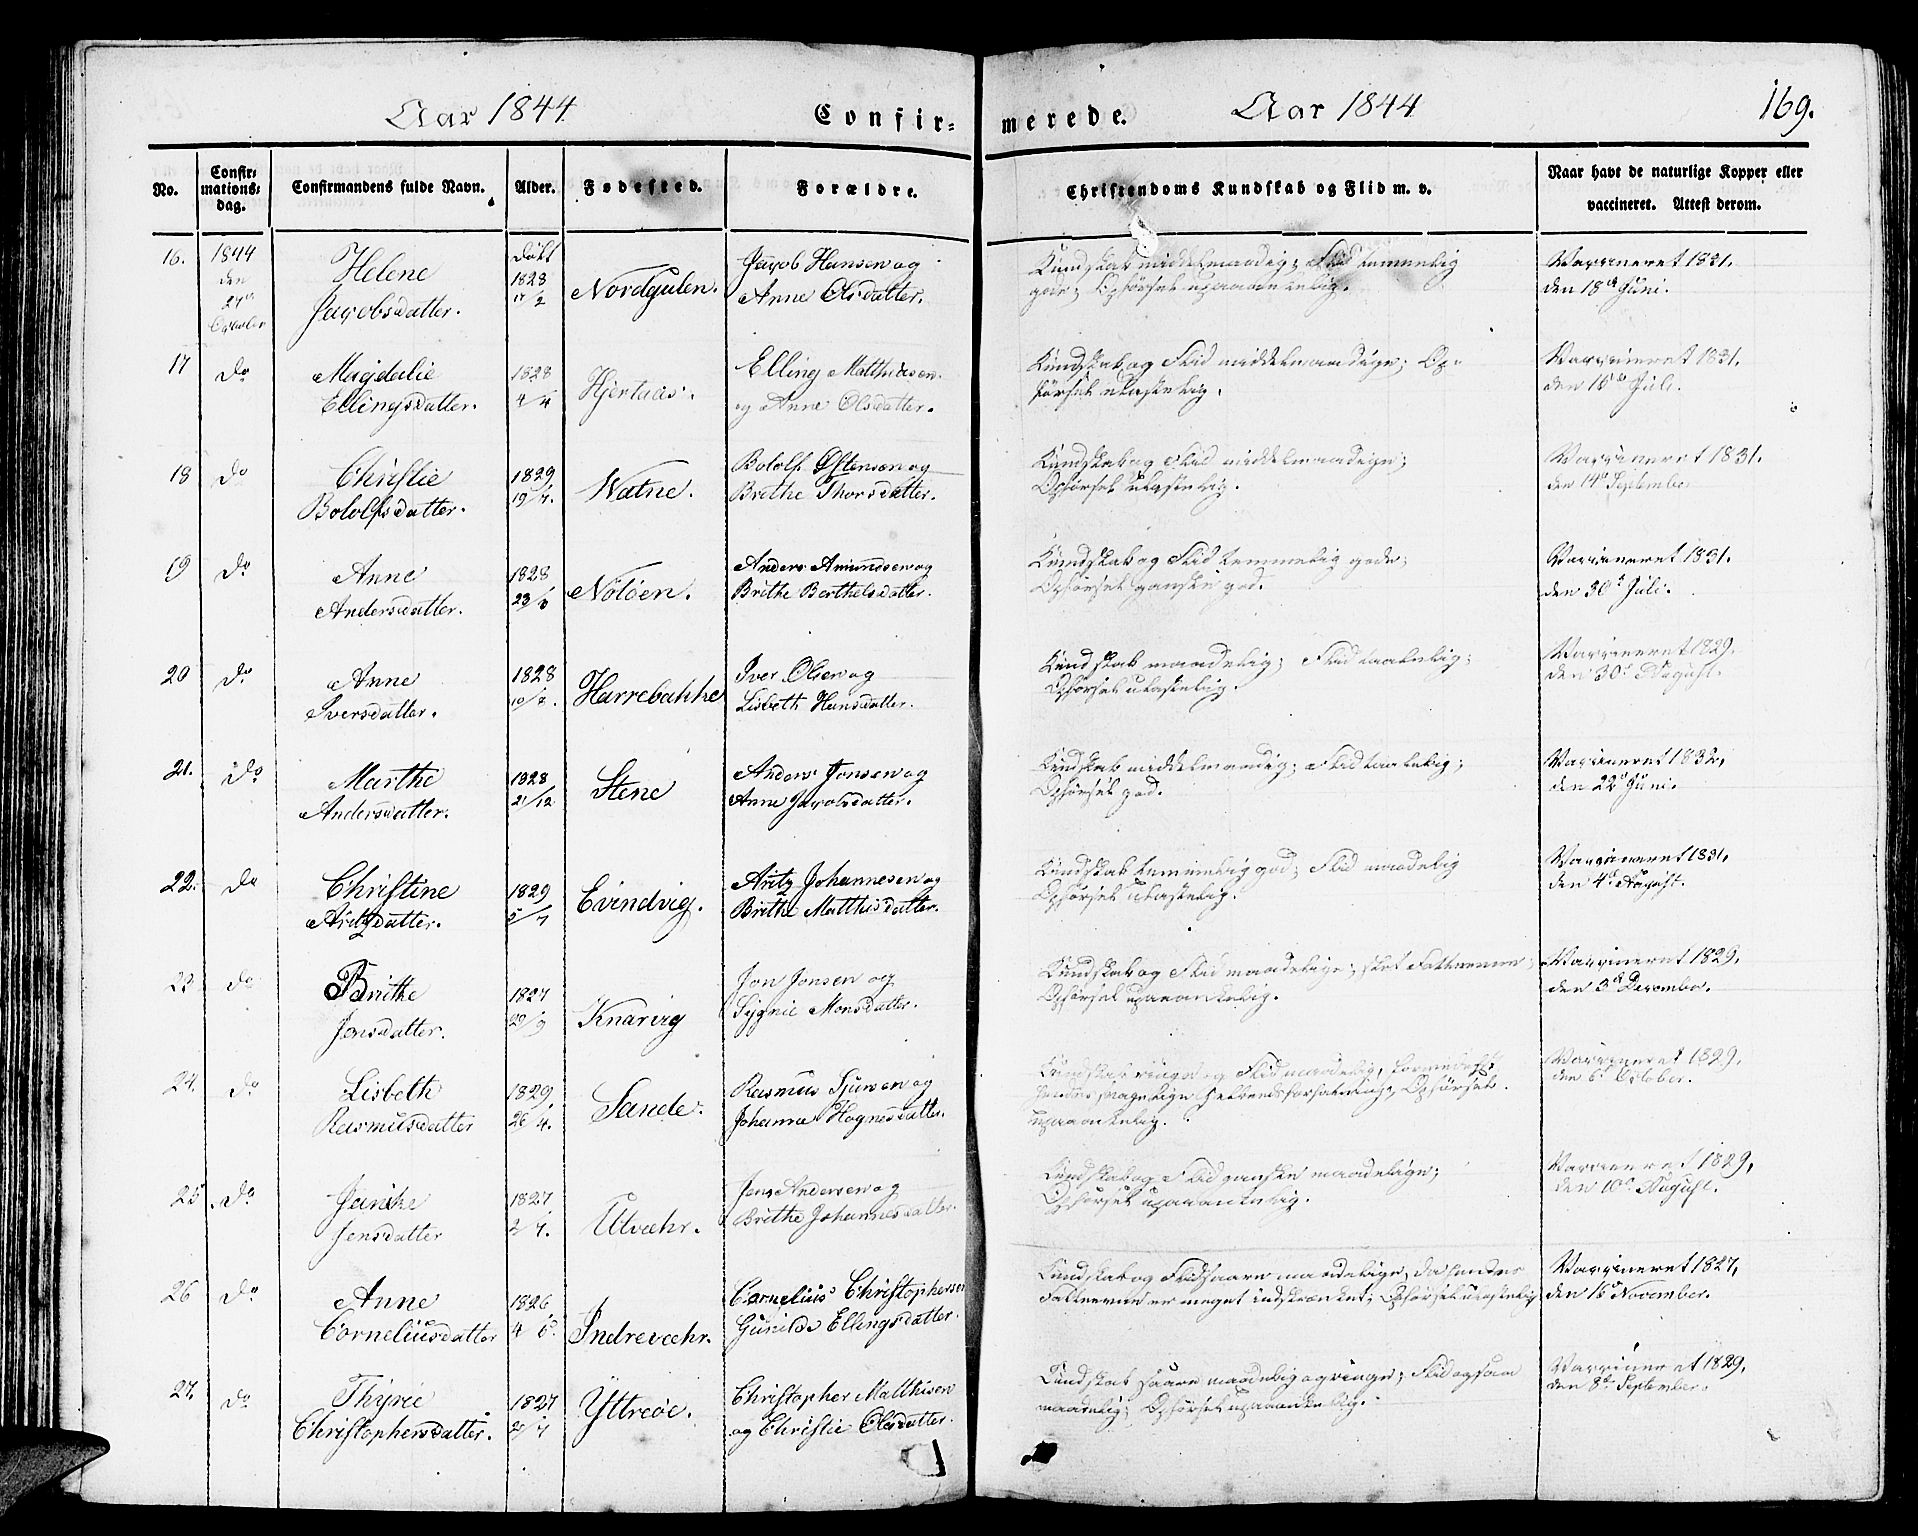 Aar 1844
Confir-
merede.
Aar 1844
169.
No.
Confir-
mations-
dag.
Confirmandens fulde Navn.
Alder.
Fødested.
Forældre.
Christendoms Kundskab og Flid m. v.
Naar havt de naturlige Kopper eller
vaccineret. Attest derom.
16.
1844
den
October
Helene
Jacobsdatter.
Døbt
1828
17/2
Nordgulen.
Jacob Hansen og
Anne Olsdatter.
Kundskab middelmaadig; Flid temmelig
god; Opførsel upaaankelig.
Vaccineret 1831.
den 18de Juni.
17
do
Magdalie
Ellingsdatter.
1828
4/4
Hjertaas.
Elling Matthiesen
og Anne Olsdatter.
Kundskab og Flid middelmaadige; Op-
førsel ulastelig.
Vaccineret 1831.
den 16de Juli.
18
do
Christie
Bololfsdatter.
1829
19/4.
Watne.
Bololf Østensen og
Brithe Thorsdatter.
Kundskab og Flid middelmaadige;
Opførsel ulastelig.
Vaccineret 1831.
den 14de September
19
do
Anne
Andersdatter.
1828
23/3
Nolöen.
Anders Amundsen og
Brithe Berthelsdatter.
Kundskab og Flid temmelig gode;
Opførsel ganske god.
Vaccineret 1831.
den 30d Juli.
20
do
Anne
Iversdatter.
1828
10/8.
Harrebakke
Iver Olsen og
Lisbeth Hansdatter.
Kundskab maadelig; Flid taalelig;
Opførsel ulastelig.
Vaccineret 1829.
den 30d August.
21.
do
Marthe
Andersdatter.
1828
21/12
Stene
Anders Jonsen og
Anne Jacobsdatter.
Kundskab middelmaadig; Flid taalelig;
Opførsel god.
Vaccineret 1832,
den 22d Juni.
22.
do
Christine
Aritzdatter.
1829
5/7
Evindvig.
Aritz Johannesen og
Brithe Matthisdatter.
Kundskab temmelig god; Flid maadelig
Opførsel ulastelig.
Vaccineret 1831,
den 4de August.
23
do
Brithe
Jonsdatter.
1827
29/9
Knarvig
Jon Jonsen og
Sygnie Monsdatter.
Kundskab og Flid maadelige; slet Fatteevne;
Opførsel upaaankelig.
Vaccineret 1829,
den 3d December.
24.
do
Lisbeth
Rasmusdatter
1829
26/4.
Sande.
Rasmus Sjursen og
Johanna Hognesdatter.
Kundskab ringe og Flid maadelig, formedelst
hendes svagelige Helbredsforfatning, Opførsel
upaaankelig.
Vaccineret 1829.
den 6d October.
25.
do
Janike
Jensdatter
1827
2/7.
Utvæhr.
Jens Andersen og
Brithe Johannesdatter.
Kundskab og Flid ganske maadelige;
Opførsel upaaankelig.
Vaccineret 1829,
den 10d August.
26
do
Anne
Corneliusdatter
1826
4 6.
Indrevæhr.
Cornelius Christophersen
Gunilde Ellingsdatter.
Kundskab og Flid saare maadelige, da hendes
Fatteevne er meget indskrænket; Opførsel ulastelig
Vaccineret 1827,
den 16 November.
27.
do
Thyrie
Christophersdatter.
1827
Yttreöe.
Christopher Matthisen
og Christie Olsdatter.
Kundskab saare maadelig og ringe; Flid ogsaa
maadelig; Opførsel upaaankelig.
Vaccineret 1829,
den 8de September.